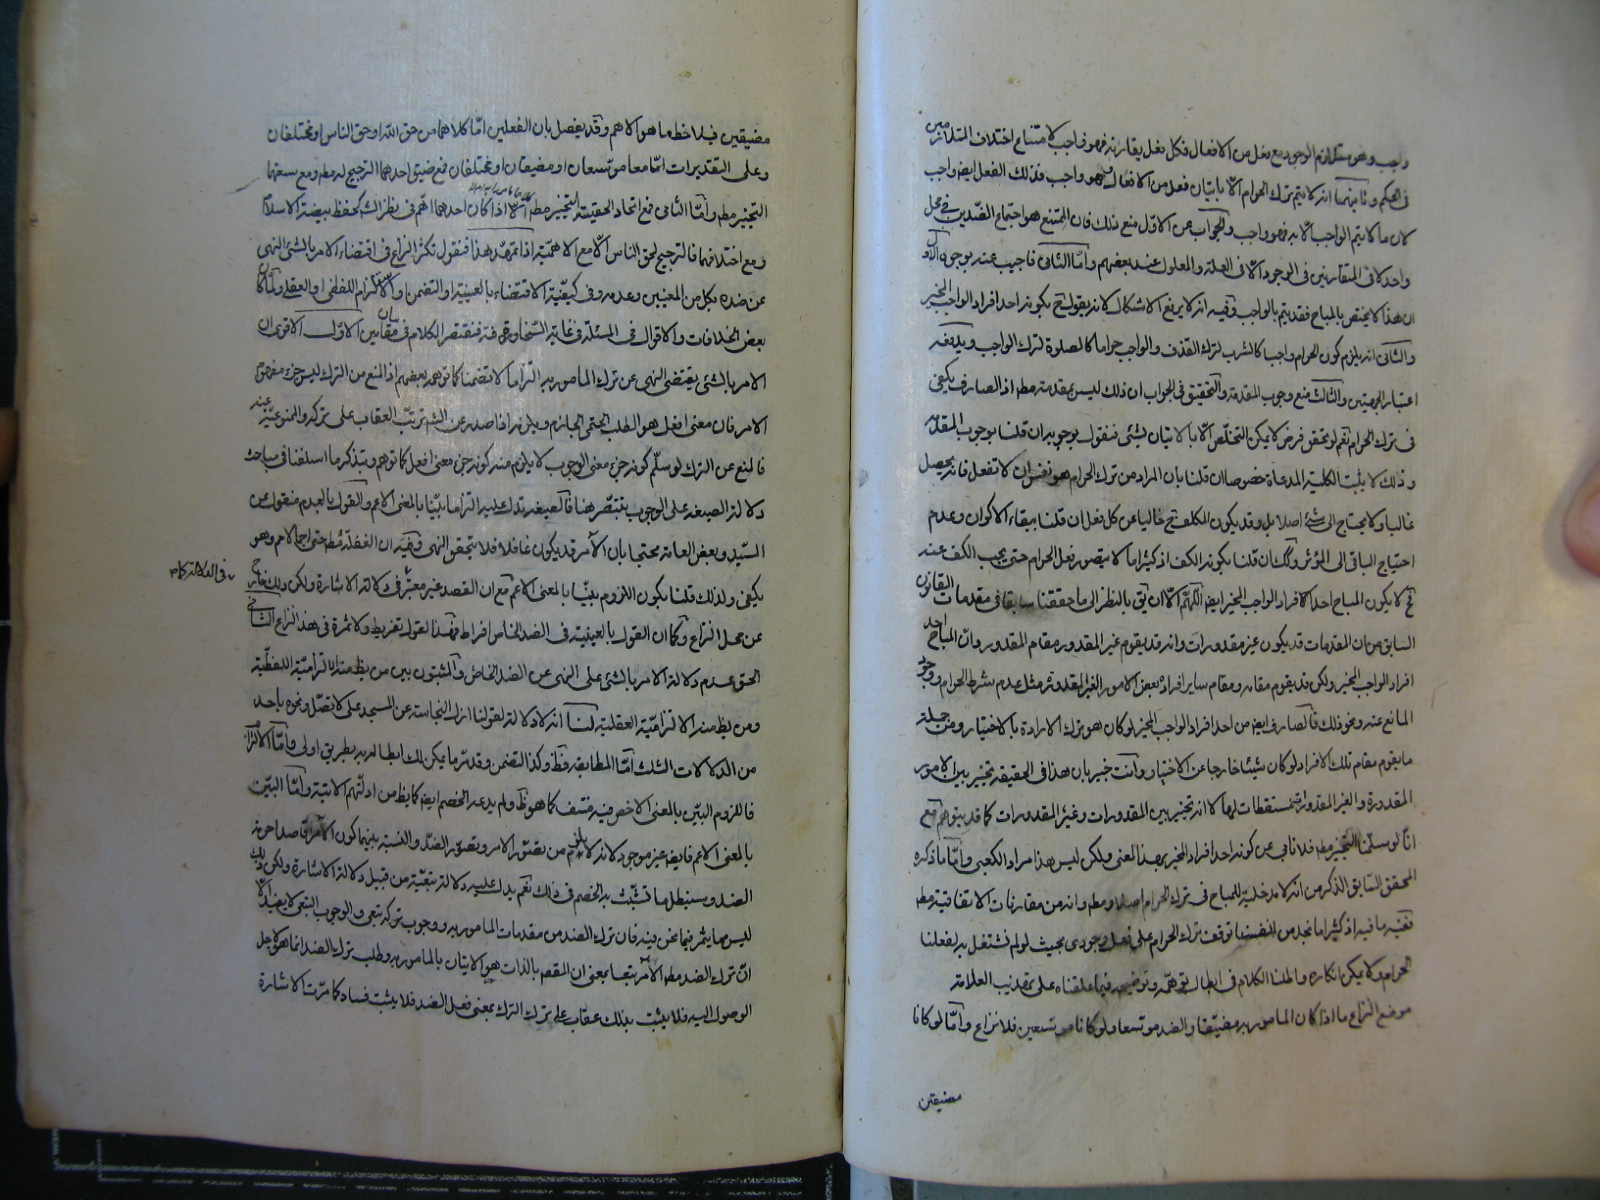 واجب وهو مستلزم الوجود مع فعل من الافعال فكل فعل يقارنه فهو واجب لامتناع اختلاف المتلازمين
في الحكم وثانيهما انه لا يتم ترك الحرام الا باتيان فعل من الافعال وهو واجب فذلك الفعل ايض واجب
لان ما لا يتم الواجب الا به فهو واجب والجواب عن الاول منع ذلك فان الممتنع هو اجتماع الضدين في محل
واحد لا في المتقارنين في الوجود الا في العلة والمعلول عند بعضهم وامّا الثاني فاجيب عنه بوجوه الاول
ان هذا لا يختص بالمباح فقد يتم بالواجب وفيه انه لا يرفع الاشكال لانه يقول ح بكونه احد افراد الواجب المخير
والثاني انه يلزم كون الحرام واجبا كالشرب لترك القذف والواجب حراما كالصلوة لترك الواجب ويدفعه
اعتبار الجهتين والثالث منع وجوب المقدمة والتحقيق في الجواب ان ذلك ليس بمقدمة مط اذ الصارف يكفي
في ترك الحرام نعم لو تحقق فرض لا يمكن التخلص الا بالاتيان بشئ فنقول بوجوبه ان قلنا بوجوب المقدمة
وذلك لا يثبت الكلية المدعاة خصوصا ان قلنا بان المراد من ترك الحرام هو نفس ان لا تفعل فانه يحصل
غالبا ولا يحتاج الى شئ اصلا بل وقد يكون المكلف ح خاليا عن كل فعل ان قلنا ببقاء الاكوان وعدم
احتياج الباقي الى المؤثر وكك ان قلنا بكونه الكف اذ كثيرا ما لا يتصور فعل الحرام حتى يجب الكف عنه
فح لا يكون المباح احد الافراد الواجب المخير ايض اللهم الا ان يق بالنظر الى ما حققنا سابقا في مقدمات القانون
السابق من ان المقدمات قد يكون غير مقدورات وانه قد يقوم غير المقدور مقام المقدور وان المباح احد
افراد الواجب المخير ولكن قد يقوم مقامه ومقام ساير افراده بعض الامور الغير المقدورة مثل عدم شرط الحرام ووجود
المانع عنه ونحو ذلك فالصارف ايض من احد افراد الواجب المخير لو كان هو ترك الارادة بالاختيار ومن جملة
ما يقوم مقام تلك الافراد لو كان شيئا خارجا عن الاختيار وانت خبير بان هذا في الحقيقة تخيير بين الامور
المقدورة والغير المقدورة مسقطات لها لا انه تخيير بين المقدورات وغير المقدورات كما قد يتوهم مع
انا لو سلمنا التخيير مط فلا نابى عن كونه احد افراد المخير بهذا المعنى ولكن ليس هذا مراد الكعبي وامّا ما ذكره
المحقق السابق الذكر من انه لا مدخلية للمباح في ترك الحرام اصلا ومط وانه من مقارنات الاتفاقية مط
ففيه ما فيه اذ كثيرا ما نجد من انفسنا توقف ترك الحرام على فعل وجودي بحيث لو لم نشتغل به لفعلنا
الحرام ولا يمكن انكاره واطلنا الكلام في ابطال توهمه وتوضيحه فيما علقناه على تهذيب العلامة
موضع النزاع ما اذا كان المامور به مضيقا والضد موسعا ولو كانا موسعين فلا نزاع وامّا لو كانا
مضيقين
مضيقين فيلاحظ ما هو الاهم وقد يفصل بان الفعلين امّا كلاهما من حق الله او حق الناس او مختلفان
وعلى التقديرات امّا معا موسعان او مضيقان او مختلفان فمع ضيق احدهما الترجيح له مط ومع سعتهما
التخيير مط وامّا الثاني فمع اتحاد الحقيقة التخيير مط الا اذا كان احدهما اهم في نظر الشارع كحفظ بيضة الاسلام
ومع اختلافهما فالترجيح لحق الناس الا مع الاهمية اذا تمهد هذا فنقول تكثر النزاع في اقتضاء الامر بالشئ النهي
عن ضده بكل من المعنيين وعدمه وفي كيفية الاقتضاء بالعينية والتضمن والالتزام اللفظي او العقلي ولما كان
بعض الخلافات والاقوال في المسئلة في غاية السخافة فنقتصر الكلام في مقامين الاول الاقوى ان
الامر بالشئ يقتضي النهي عن ترك المامور به التزاما لا تضمنا كما توهمه بعضهم اذ المنع من الترك ليس جزء مفهوم
الامر فان معنى افعل هو الطلب الحتمي الجازم ويلزمه اذا صدر عن الشارع ترتب العقاب على تركه والممنوعية عنه
فالمنع عن الترك لو سلم كونه جزء معنى الوجوب لا يلزم منه كونه جزء معنى افعل كما توهم وتذكر ما اسلفنا في مباحث
دلالة الصيغة على الوجوب تتبصر هنا فالصيغة تدل عليه التزاما بينا بالمعنى الاعم والقول بالعدم منقول عن
السيد وبعض العامة محتجا بان الآمر قد يكون غافلا فلا يتحقق النهي وفيه ان الغفلة مط حتى اجمالا مم وهو
يكفي ولذلك قلنا بكون اللزوم بينا بالمعنى الاعم مع ان القصد غير معتبر في دلالة الاشارة ولكن ذلك خارج
عن محل النزاع وكما ان القول بالعينية في الضد الخاص افراط فهذا القول تفريط ولا ثمرة في هذا النزاع الثاني
الحق عدم دلالة الامر بالشئ على النهي عن الضد الخاص والمثبتون بين من يظهر منه الالتزامية اللفظية
ومن يظهر منه الالتزامية العقلية لنا انه لا دلالة لقولنا ازل النجاسة عن المسجد على لا تصل ونحوه باحد
من الدلالات الثلث امّا المطابقة فظ وكذا التضمن وقد مر ما يمكن لك ابطاله به بطريق اولى وامّا الالتزام
فاللزوم البين بالمعنى الاخص فيه منتف كما هو ظ ولم يدعه الخصم ايض كما يظهر من ادلتهم الاتية وامّا البين
بالمعنى الاعم فايض غير موجود لانه لا يلزم من تصور الامر وتصور الضد والنسبة بينهما كون الآمر قاصدا حرمة
الضد وسنبطل ما تشبث به الخصم في ذلك نعم يدل عليه دلالة تبعية من قبيل دلالة الاشارة ولكن ذلك
ليس مما يثمر فيما نحن فيه فان ترك الضد من مقدمات المامور به ووجوب تركه تبعي والوجوب التبعي لا يفيد الا
ان ترك الضد مط الآمر تبعا بمعنى ان المقصود بالذات هو الاتيان بالمامور به وطلب ترك الضد انما هو لاجل
الوصول اليه فلا يثبت بذلك عقاب على ترك الترك بمعنى فعل الضد فلا يثبت فساد كما مرت الاشارة